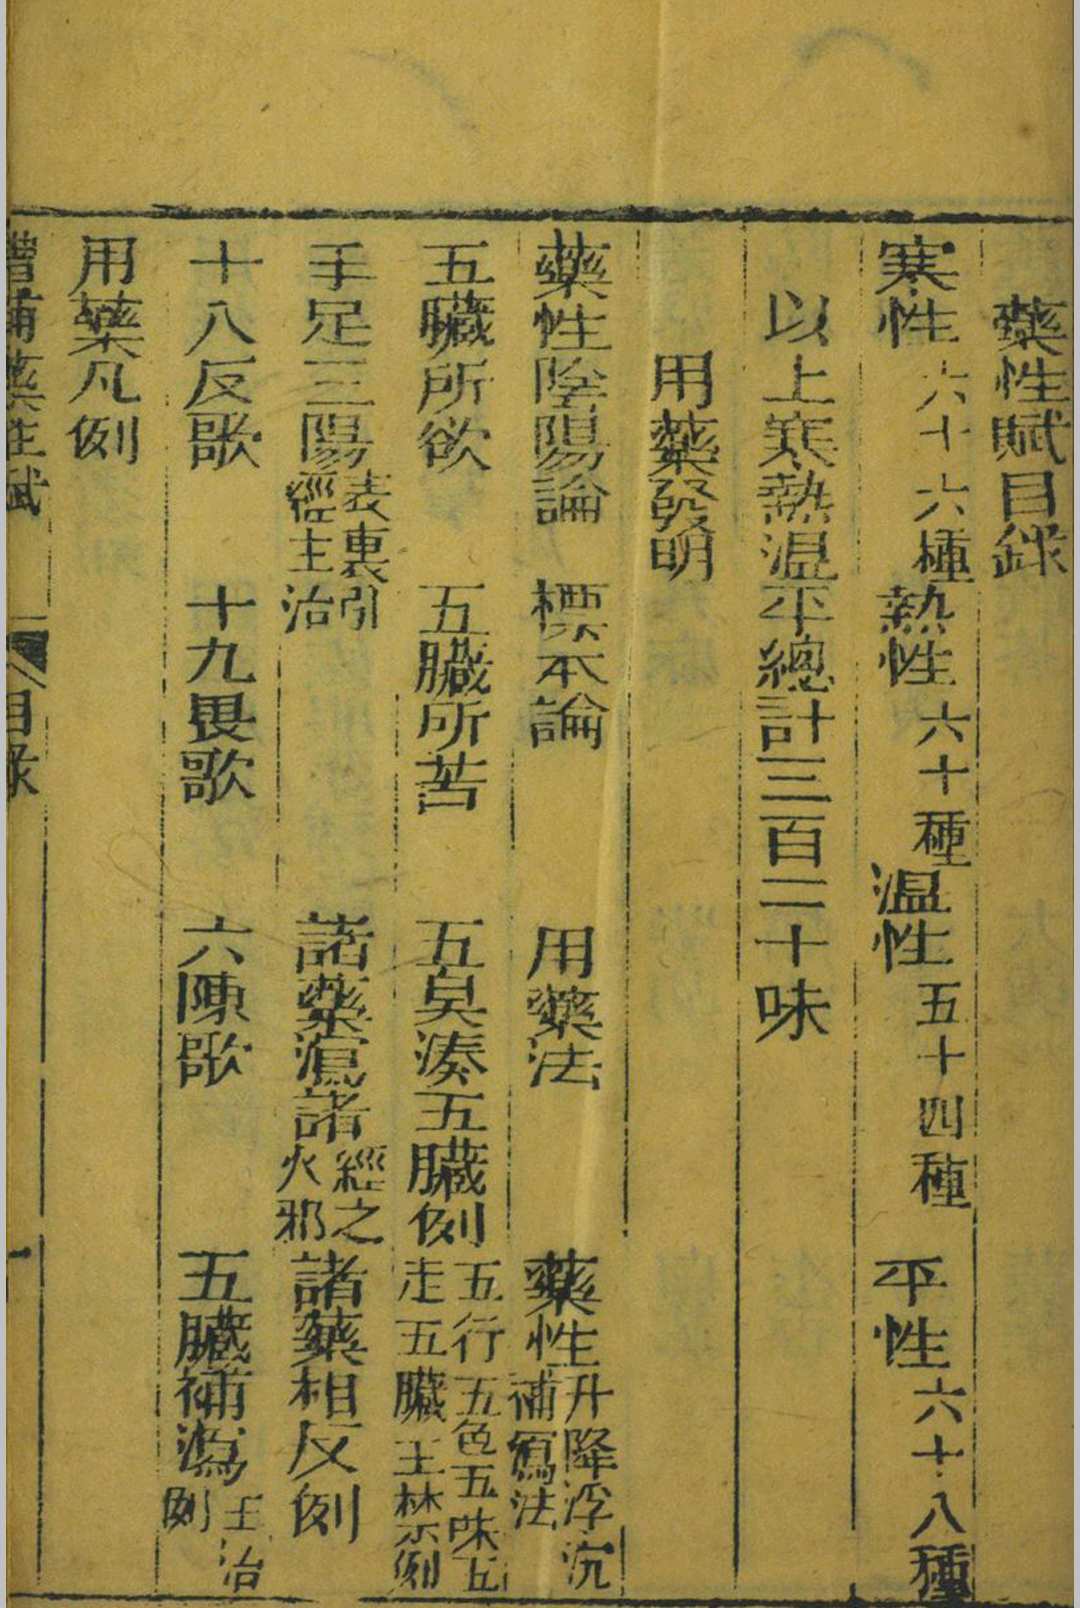 藥性賦目錄
寒性六十六種熱性六十種溫性五十四種平性六十八種
以上寒熱温平總計三百二十味
用藥發明
藥性陰陽論 標本論 用藥法 藥性升降浮沉補瀉法
五臟所欲 五臟所苦 五臭湊五臟例 五行五色五味五走五臟主禁例
手足三陽表裏引經主治 諸藥瀉諸經之火邪 諸藥相反例
十八反歌 十九畏歌 六陳歌 五臟補瀉主治例
用藥凡例
增補藥性賦 目錄 一